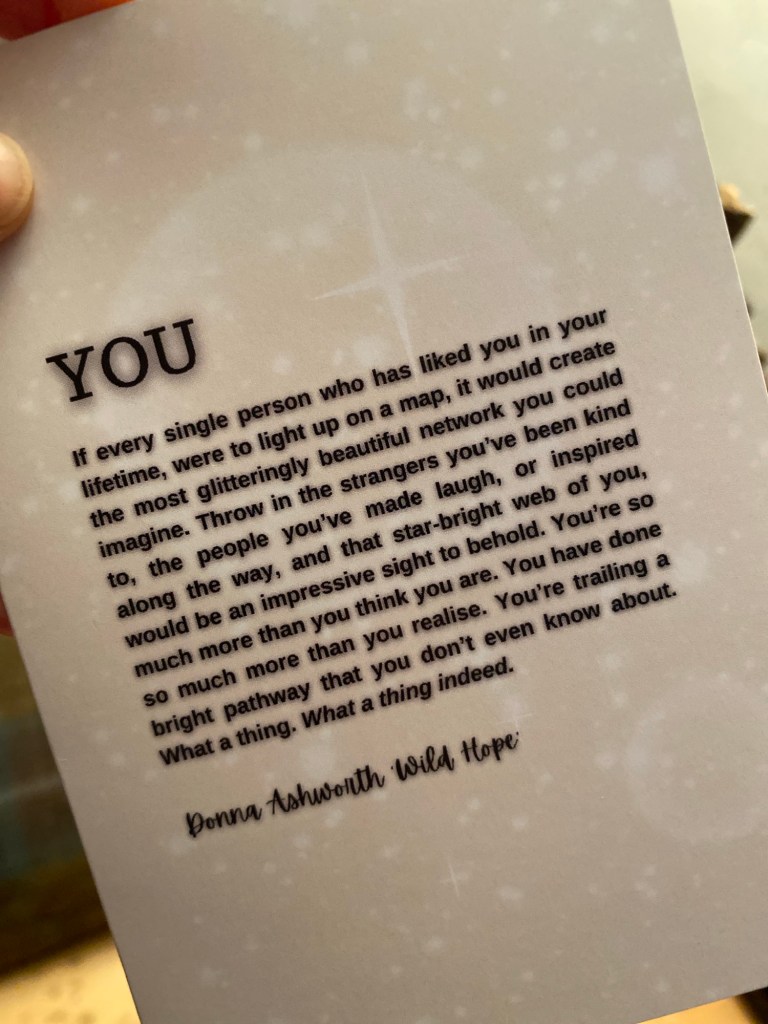 YOU
If every single person who has liked you in your
lifetime, were to light up on a map, it would create
the most glitteringly beautiful network you could
imagine. Throw in the strangers you've been kind
to, the people you've made laugh, or inspired
along the way, and that star-bright web of you,
would be an impressive sight to behold. You're so
much more than you think you are. You have done
so much more than you realise. You're trailing a
bright pathway that you don't even know about.
What a thing. What a thing indeed.
Donna Ashworth 'Wild Hope'